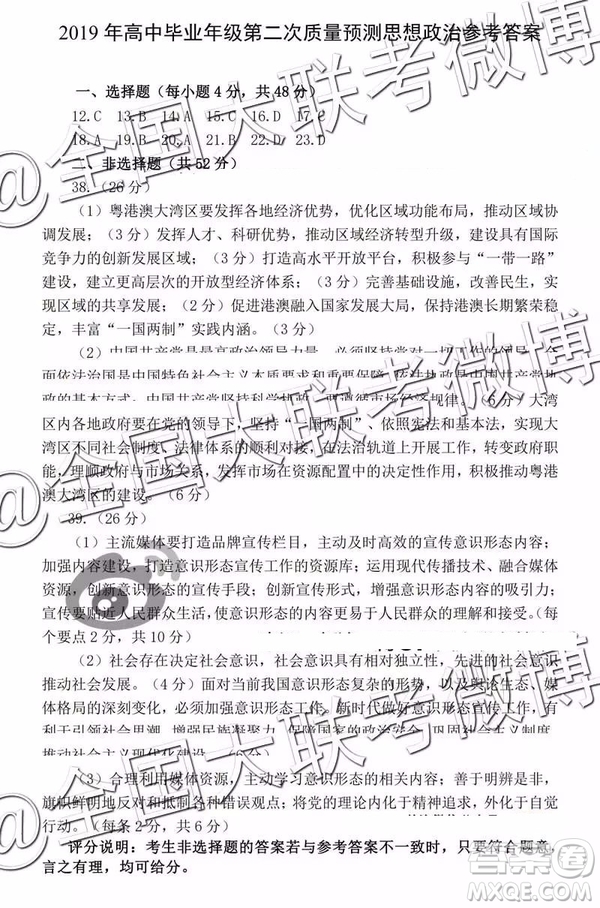 2019年高中毕业年级第二次质量预测思想政治参考答案
一、选择题（每小题4分，共48分）
12.C 13.B 14.A 15.C 16.D 17.C
18.A 19.B 20.A 21.B 22.D 23.D
二、非选择题（共52分）
38.（26分）
（1）粤港澳大湾区要发挥各地经济优势，优化区域功能布局，推动区域协
调发展；（3分）发挥人才、科研优势，推动经济转型升级，建设具有国际
竞争力的创新发展区域；（3分）打造高水平开放平台，积极参与“一带一路”
建设，建立更高层次的开放型经济体系；（3分）完善基础设施，改善民生，实
现区域的共享发展；（2分）促进港澳融入国家发展大局，保持港澳长期繁荣稳
定，丰富“一国两制”实践内涵。（3分）
（2）中国共产党是最高政治领导力量，必须坚持党对一切工作的领导。全
面依法治国是中国特色社会主义本质要求和重要保障，依法执政是中国共产党执
政的基本方式。中国共产党坚持科学执政，要遵循市场经济规律。（6分）大湾
区内各地政府要在党的领导下，坚持“一国两制”、依照宪法和基本法，实现大
湾区不同社会制度、法律体系的顺利对接，在法治轨道上开展工作，转变政府职
能，理顺政府与市场关系，发挥市场在资源配置中的决定性作用，积极推动粤港
澳大湾区的建设。（6分）
39.（26分）
（1）主流媒体要打造品牌宣传栏目，主动及时高效的宣传意识形态内容；
加强内容建设，打造意识形态宣传工作的资源库；运用现代传播技术、融合媒体
资源，创新意识形态的宣传手段；创新宣传形式，增强意识形态内容的吸引力；
宣传要贴近人民群众生活，使意识形态的内容易于人民群众的理解和接受。（每
个要点2分，共10分）
（2）社会存在决定社会意识，社会意识具有相对独立性，先进的社会意识
推动社会发展。（4分）面对当前我国意识形态复杂的形势，以及舆论生态、媒
体格局的深刻变化，必须加强意识形态工作。新时代做好意识形态宣传工作，有
利于引领社会思潮，增强民族凝聚力，保障国家的政治安全，巩固社会主义制度，
推动社会主义现代化建设。（6分）
（3）合理利用媒体资源，主动学习意识形态的相关内容；善于明辨是非，
旗帜鲜明地反对和抵制各种错误观点；将党的理论内化于精神追求，外化于自觉
行动。（每条2分，共6分）
评分说明：考生非选择题的答案若与参考答案不一致时，只要符合题意，
言之有理，均可给分。
@全国大联考微博
@全国大联考微博
@全国大联考微博
答案圈
MXQE.COM